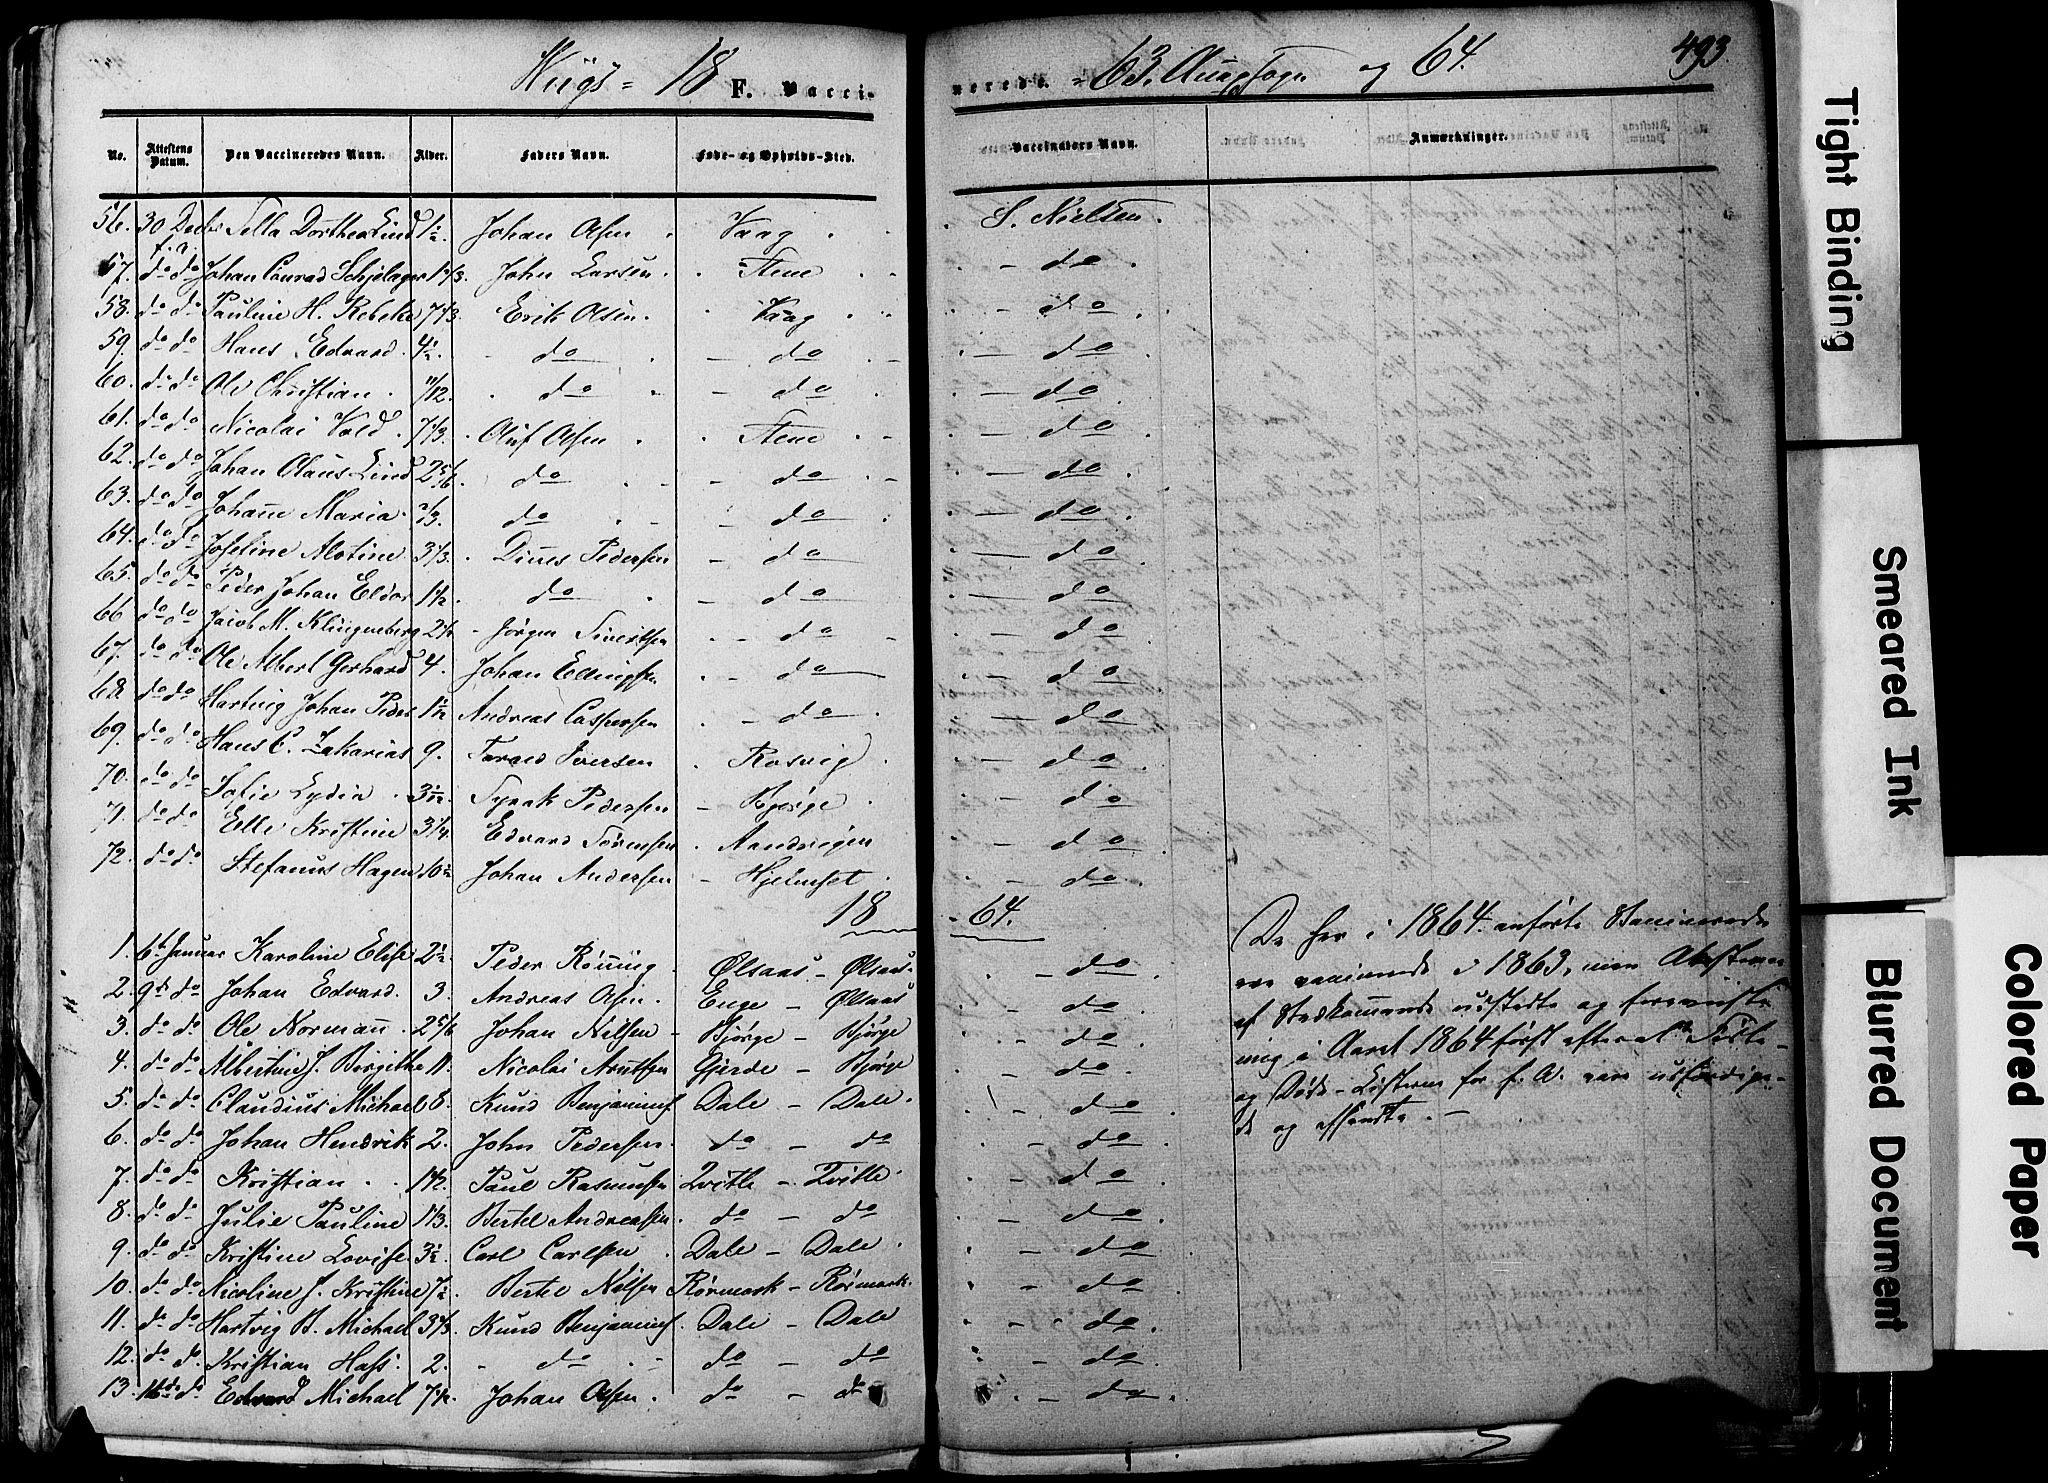 Wiigs = 18 63. Annexsogn og 64. 493.
F. Vaccinerede.
No. Attestens Datum. Den Vaccineredes Navn. Alder. Faders Navn. Føde- og Opholds-Sted. Vaccinators Navn. Anmærkninger.
56. 30 Decbr f.A. Sella Dorthea Lind 1 1/2. Johan Olsen Vaag S. Nielsen.
57. do do Johan Conrad Schjelager 1 2/3. John Larsen Stene do
58. do do Pauline H. Rebekc 7 1/3. Erik Olsen Vaag do
59. do do Hans Edvard 4 1/2. do do do
60. do do Ole Christian 11/12. do do do
61. do do Nicolai Vold 7 1/3. Oluf Olsen Stene do
62. do do Johan Olaus Lind 2 5/6 do do do
63. do do Johanne Maria 2/3. do do do
64. do do Joseline Alotine 3 1/3. Dines Pedersen do do
65. do do Peder Johan Eldor 1 1/2. do do do
66 do do Jacob M. Klingenberg 2 1/2 Jørgen Sivertsen do do
67. do do Ole Albert Gerhard 4. Johan Ellingsen do do
68. do do Hartvig Johan Peder 1 1/12 Andreas Caspersen do do
69. do do Hans C. Zakarias 9. Torald Iversen Rosvig do
70. do do Sofie Lydia 3 1/12. Syrak Pedersen Bjørge do
71. do do Elle Kristine 3 1/4. Edvard Sørensen Aandvigen do
72. do do Stefanus Hagen 10 1/2 Johan Andersen Hjelmset do
18 64.
1. 6te Januar Karoline Elise 2 1/2. Peder Rønning Ølsaas - Ølsaas do
2. 9de do Johan Edvard. 3. Andreas Olsen. Enge - Ølsaas do
3. do do Ole Normann 2 5/6 Johan Nilsen Bjørge - Bjørge do
4. do do Albertine J. Birgithe 11. Nicolai Arntsen Gjerde - Bjørge do
5. do do Claudius Michael 8. Knud Benjamins. Dale - Dale do
6. do do Johan Hendrik 2. John Pedersen do - do do
7. do do Kristian 1 1/2. Paul Rasmussen Tvitle - Tvitle do
8. do do Julie Pauline 1 1/3. Bertel Andreassen do - do do
9. do do Kristine Lovise 3 1/2. Carl Carlsen Dale - Dale do
10. do do Nicoline J. Kristine 7 1/2 Bertel Nilsen Rørmark - Rørmark do
11. do do Hartvig B. Michael 3 1/3. Knud Benjamins. Dale - Dale do
12. do do Kristian Hass. 2. do do - do do
13. 16de do Edvard Michael 7 1/2. Johan Olsen do - do do
De her i 1864 anførte Vaccinerede
ere vaccinerede i 1863, men Attesterne
af Vedkommende udstedte og foreviste
mig i Aaret 1864 først efterat Føde-
og Døde-Listerne for f. A. vare udfærdige-
de og afsendte. -
Tight Binding
Smeared Ink
Blurred Document
Colored Paper